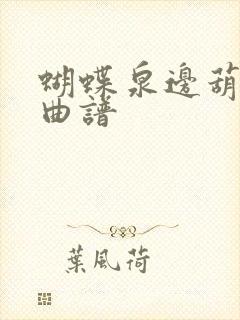 蝴蝶泉邊葫
曲譜
葉風荷